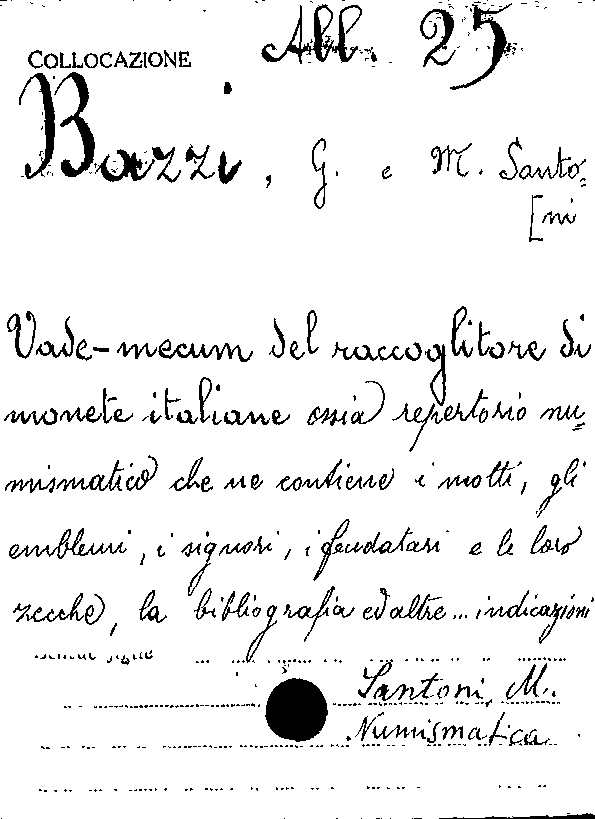 COLLOCAZIONE All. 25
Bazzi, G. e M. Santo=
[ni
Vade-mecum del raccoglitore di
monete italiane ossia repertorio nu=
mismatico che ne contiene i motti, gli
emblemi, i signori, i feudatari e le loro
zecche, la bibliografia ed altre... indicazioni
Santoni, M.
Numismatica